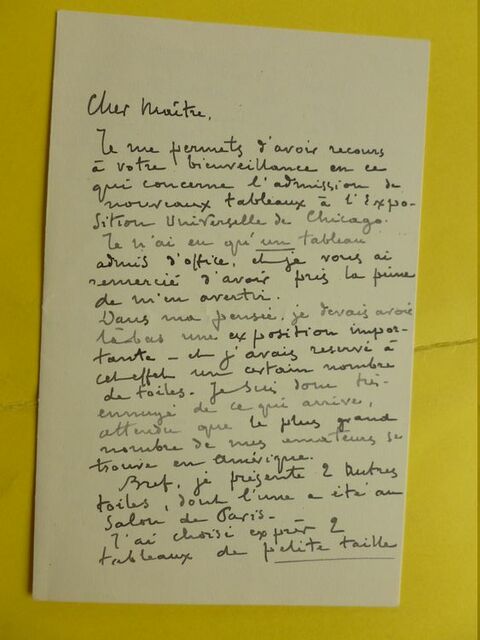 Cher Maître,
Je me permets d'avoir recours
à votre bienveillance en ce
qui concerne l'admission de
nouveaux tableaux à l'Expo-
sition Universelle de Chicago.
Je n'ai eu qu'un tableau
admis d'office, et je vous ai
remercié d'avoir pris la peine
de m'en avertir.
Dans ma pensée, je devais avoir
là-bas une exposition impor-
tante - et j'avais reservé à
cet effet un certain nombre
de toiles. Je suis donc très-
ennuyé de ce qui arrive,
attendu que le plus grand
nombre de mes amateurs se
trouve en Amérique.
Bref, je présente 2 autres
toiles, dont l'une a été au
Salon de Paris-
J'ai choisi exprès 2
tableaux de petite taille